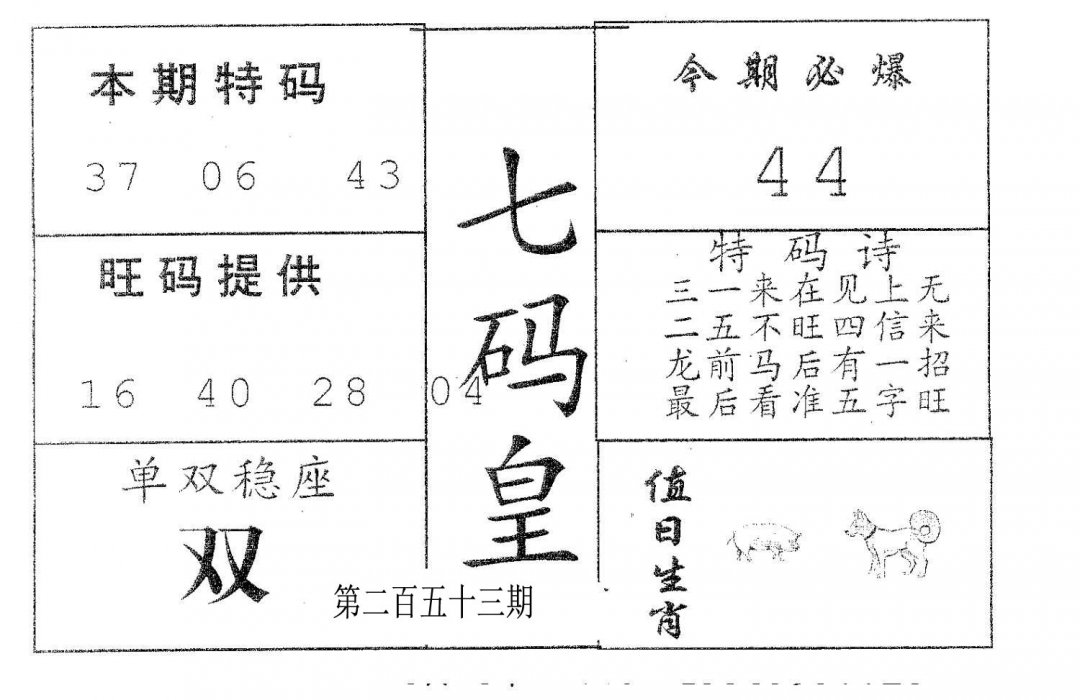 本期特码
37 06 43
旺码提供
16 40 28 04
单双稳座
双
七码皇
第二百五十三期
今期必爆
44
特码诗
三一来在见上无
二五不旺四信来
龙前马后有一招
最后看准五字旺
值日生肖